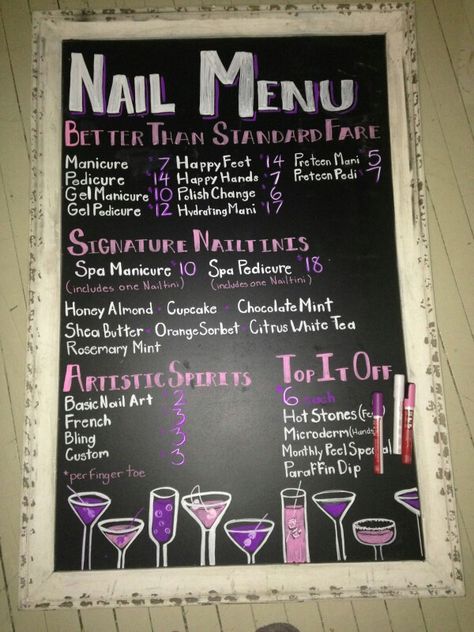 NAIL MENU
BETTER THAN STANDARD FARE
Manicure $7 Happy Feet $14 Preteen Mani 5
Pedicure 14 Happy Hands $7 Preteen Pedi $7
Gel Manicure $10 Polish Change $6
Gel Pedicure $12 Hydrating Mani $17
SIGNATURE NAILTINIS
Spa Manicure $10 Spa Pedicure $18
(includes one Nailtini) (includes one Nailtini)
Honey Almond · Cupcake · Chocolate Mint
Shea Butter · Orange Sorbet · Citrus White Tea
Rosemary Mint
ARTISTIC SPIRITS
Basic Nail Art $2
French 3
Bling 3
Custom 3
*per finger toe
TOP IT OFF
$6 each
Hot Stones (Fe
Microderm (Hands
Monthly Peel Special
Paraffin Dip